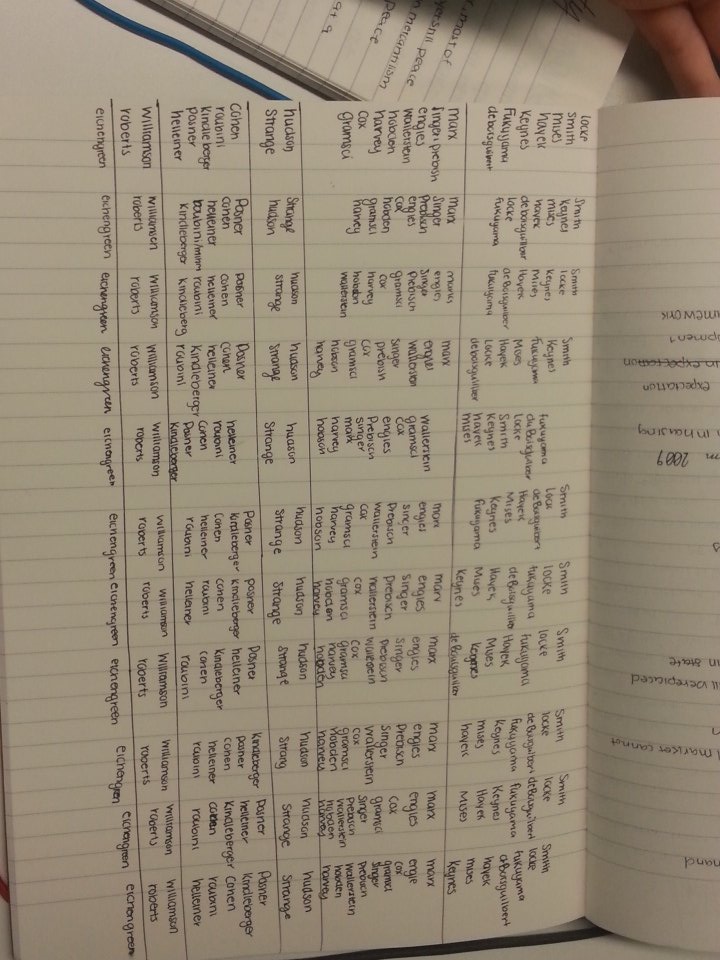 locke
Smith
mises
hayek
Keynes
Fukuyama
deboisguilbert
marx
Singer prebish
engles
wallerstein
hobden
harvey
cox
gramsci
hudson
Strange
Cohen
roubini
Kindleberger
posner
helleiner
Williamson
roberts
eichengreen
Smith
Keynes
mises
hayek
deboisguilber
locke
fukuyama
marx
singer
Prebisch
engles
cox
hobden
gramsci
harvey
Strange
hudson
Posner
cohen
helleiner
kindleberger
williamson
roberts
eichengreen
Smith
locke
Keynes
Mises
Hayek
deBoisguilber
fukuyama
marks
engles
singer
Prebisch
gramsci
cox
harvey
hobden
wallerstein
hudson
Strange
Posner
cohen
helleiner
roubini
kindleberg
Williamson
roberts
eichengreen
Smith
Keynes
fukuyama
Mises
Hayek
Locke
deboisguilber
marx
engles
wallerstein
singer
prebisch
cox
gramsci
hobson
harvey
hudson
Strange
Posner
cohen
helleiner
Kindleberger
roubini
Williamson
roberts
eichengreen
fukuyama
deBoisguilber
locke
Smith
Keynes
hayek
mises
wallerstein
gramsci
cox
engles
Prebisch
singer
mark
harvey
hobson
hudson
Strange
helleiner
roubini
cohen
Posner
Kindleberger
williamson
roberts
eichengreen
Smith
Lock
deBoisguilbert
Hayek
Mises
Keynes
fukuyama
marx
engles
singer
Prebisch
wallerstein
cox
gramsci
harvey
hobson
hudson
Strange
Posner
kindleberger
cohen
helleiner
roubini
williamson
roberts
eichengreen
Smith
locke
fukuyama
deBoisguilber
Hayek
Mises
Keynes
marx
engles
singer
Prebisch
wallerstein
cox
gramsci
hobden
harvey
hudson
Strange
posner
kindleberger
cohen
roubini
helleiner
williamson
roberts
eichengreen
Smith
locke
fukuyama
Hayek
Mises
Keynes
deBoisguilber
marx
engles
singer
prebisch
wallerstein
cox
gramsci
harvey
hobden
hudson
Strange
Posner
helleiner
Kindleberger
cohen
roubini
Williamson
roberts
eichengreen
Smith
locke
deBoisguilbert
fukuyama
Keynes
mises
hayek
marx
engles
Prebisch
singer
wallerstein
cox
gramsci
hobden
harvey
hudson
Strang
Kindleberger
Posner
cohen
helleiner
roubini
Williamson
roberts
eichengren
Smith
locke
deBoisguilbert
fukuyama
Keynes
Hayek
Mises
marx
engles
Cox
gramsci
Singer
prebisch
wallerstein
hobden
harvey
hudson
Strange
Posner
helleiner
Kindleberger
cohen
roubini
Williamson
roberts
eichengreen
Smith
locke
fukuyama
deBoisguilbert
hayek
mises
Keynes
marx
engle
cox
gramsci
singer
Prebisch
wallerstein
hobden
harvey
hudson
Strange
Posner
kindleberger
Cohen
roubini
helleiner
Williamson
roberts
eichengreen
peace
mercantilism
peace
expectation
in housing
2009
in state
market cannot